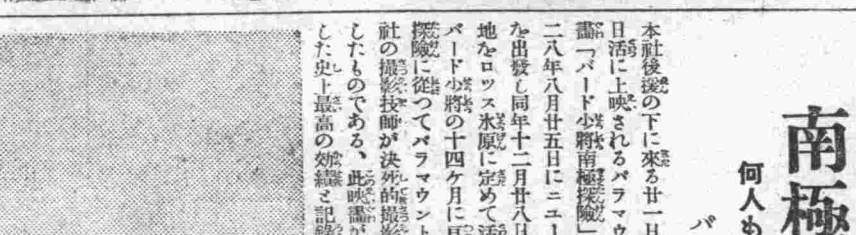 南極
何人も
パ
本社後援の下に來る廿一日
日活に上映されるパラマウ
畫「バード少將南極探險」
二八年八月廿五日にニユー
を出發し同年十二月廿八日
地をロツス氷原に定めて活
バード少將の十四ケ月に亘
探險に從つてパラマウント
社の撮影技師が決死的撮影
したものである、此映畫が
した史上最高の効績と記錄